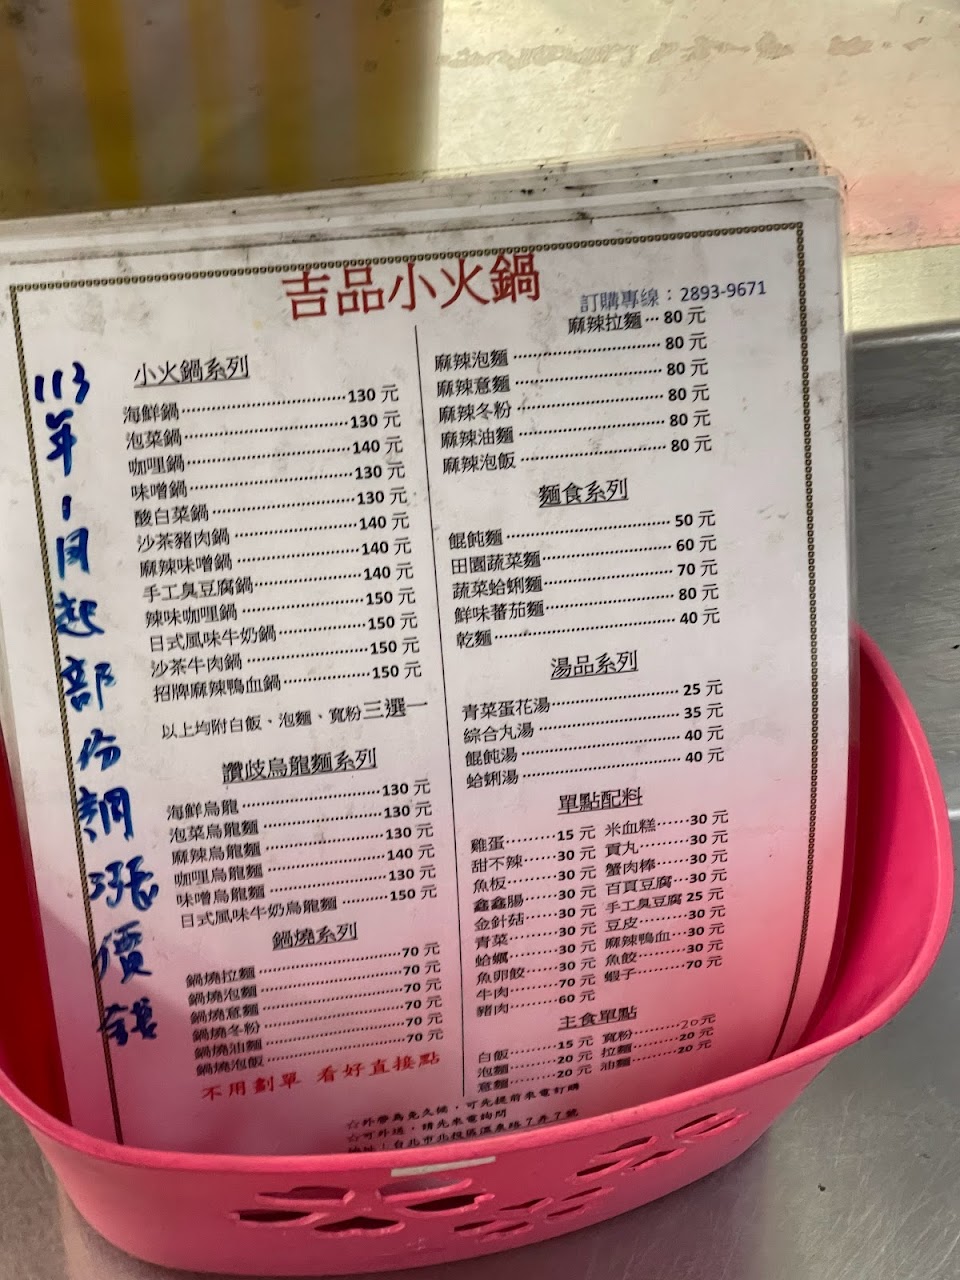 吉品小火鍋
訂購專線：2893-9671
113年1月起部份調漲價錢
小火鍋系列
海鮮鍋 130 元
泡菜鍋 130 元
咖哩鍋 140 元
味噌鍋 130 元
酸白菜鍋 130 元
沙茶豬肉鍋 140 元
麻辣味噌鍋 140 元
手工臭豆腐鍋 140 元
辣味咖哩鍋 150 元
日式風味牛奶鍋 150 元
沙茶牛肉鍋 150 元
招牌麻辣鴨血鍋 150 元
以上均附白飯、泡麵、寬粉三選一
讚岐烏龍麵系列
海鮮烏龍 130 元
泡菜烏龍麵 130 元
麻辣烏龍麵 130 元
咖哩烏龍麵 140 元
味噌烏龍麵 130 元
日式風味牛奶烏龍麵 150 元
鍋燒系列
鍋燒拉麵 70 元
鍋燒泡麵 70 元
鍋燒意麵 70 元
鍋燒冬粉 70 元
鍋燒油麵 70 元
鍋燒泡飯
不用劃單 看好直接點
麻辣拉麵 80 元
麻辣泡麵 80 元
麻辣意麵 80 元
麻辣冬粉 80 元
麻辣油麵 80 元
麻辣泡飯 80 元
麵食系列
餛飩麵 50 元
田園蔬菜麵 60 元
蔬菜蛤蜊麵 70 元
鮮味蕃茄麵 80 元
乾麵 40 元
湯品系列
青菜蛋花湯 25 元
綜合丸湯 35 元
餛飩湯 40 元
蛤蜊湯 40 元
單點配料
雞蛋 15 元 米血糕 30 元
甜不辣 30 元 貢丸 30 元
魚板 30 元 蟹肉棒 30 元
鑫鑫腸 30 元 百頁豆腐 30 元
金針菇 30 元 手工臭豆腐 25 元
青菜 30 元 豆皮 30 元
蛤蠣 30 元 麻辣鴨血 30 元
魚卵餃 30 元 魚餃 30 元
牛肉 70 元 蝦子 70 元
豬肉 60 元
主食單點
白飯 15 元 寬粉 20元
泡麵 20 元 拉麵 20 元
意麵 20 元 油麵 20 元
☆外帶為免久候，可先提前來電訂購
☆可外送，請先來電詢問
地址：台北市北投區溫泉路7弄7號